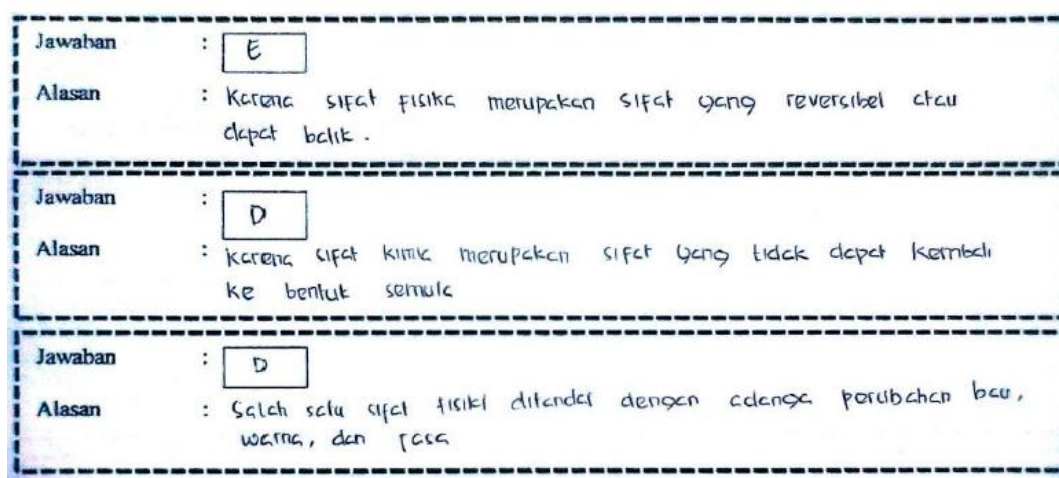 Jawaban : E
Alasan : Karena sifat fisika merupakan sifat yang reversibel atau
dapat balik.
Jawaban : D
Alasan : Karena sifat kimia merupakan sifat yang tidak dapat kembali
ke bentuk semula
Jawaban : D
Alasan : Salah satu sifat fisika ditandai dengan adanya perubahan bau,
warna, dan rasa